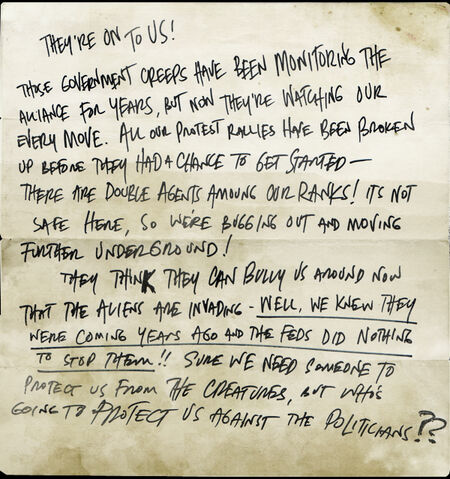 THEY'RE ON TO US!
THOSE GOVERNMENT CREEPS HAVE BEEN MONITORING THE
ALLIANCE FOR YEARS, BUT NOW THEY'RE WATCHING OUR
EVERY MOVE. ALL OUR PROTEST RALLIES HAVE BEEN BROKEN
UP BEFORE THEY HAD A CHANCE TO GET STARTED—
THERE ARE DOUBLE AGENTS AMOUNG OUR RANKS! ITS NOT
SAFE HERE, SO WE'RE BUGGING OUT AND MOVING
FURTHER UNDERGROUND!
THEY THINK THEY CAN BULLY US AROUND NOW
THAT THE ALIENS ARE INVADING - WELL, WE KNEW THEY
WERE COMING YEARS AGO AND THE FEDS DID NOTHING
TO STOP THEM!! SURE WE NEED SOMEONE TO
PROTECT US FROM THE CREATURES, BUT WHO'S
GOING TO PROTECT US AGAINST THE POLITICIANS??